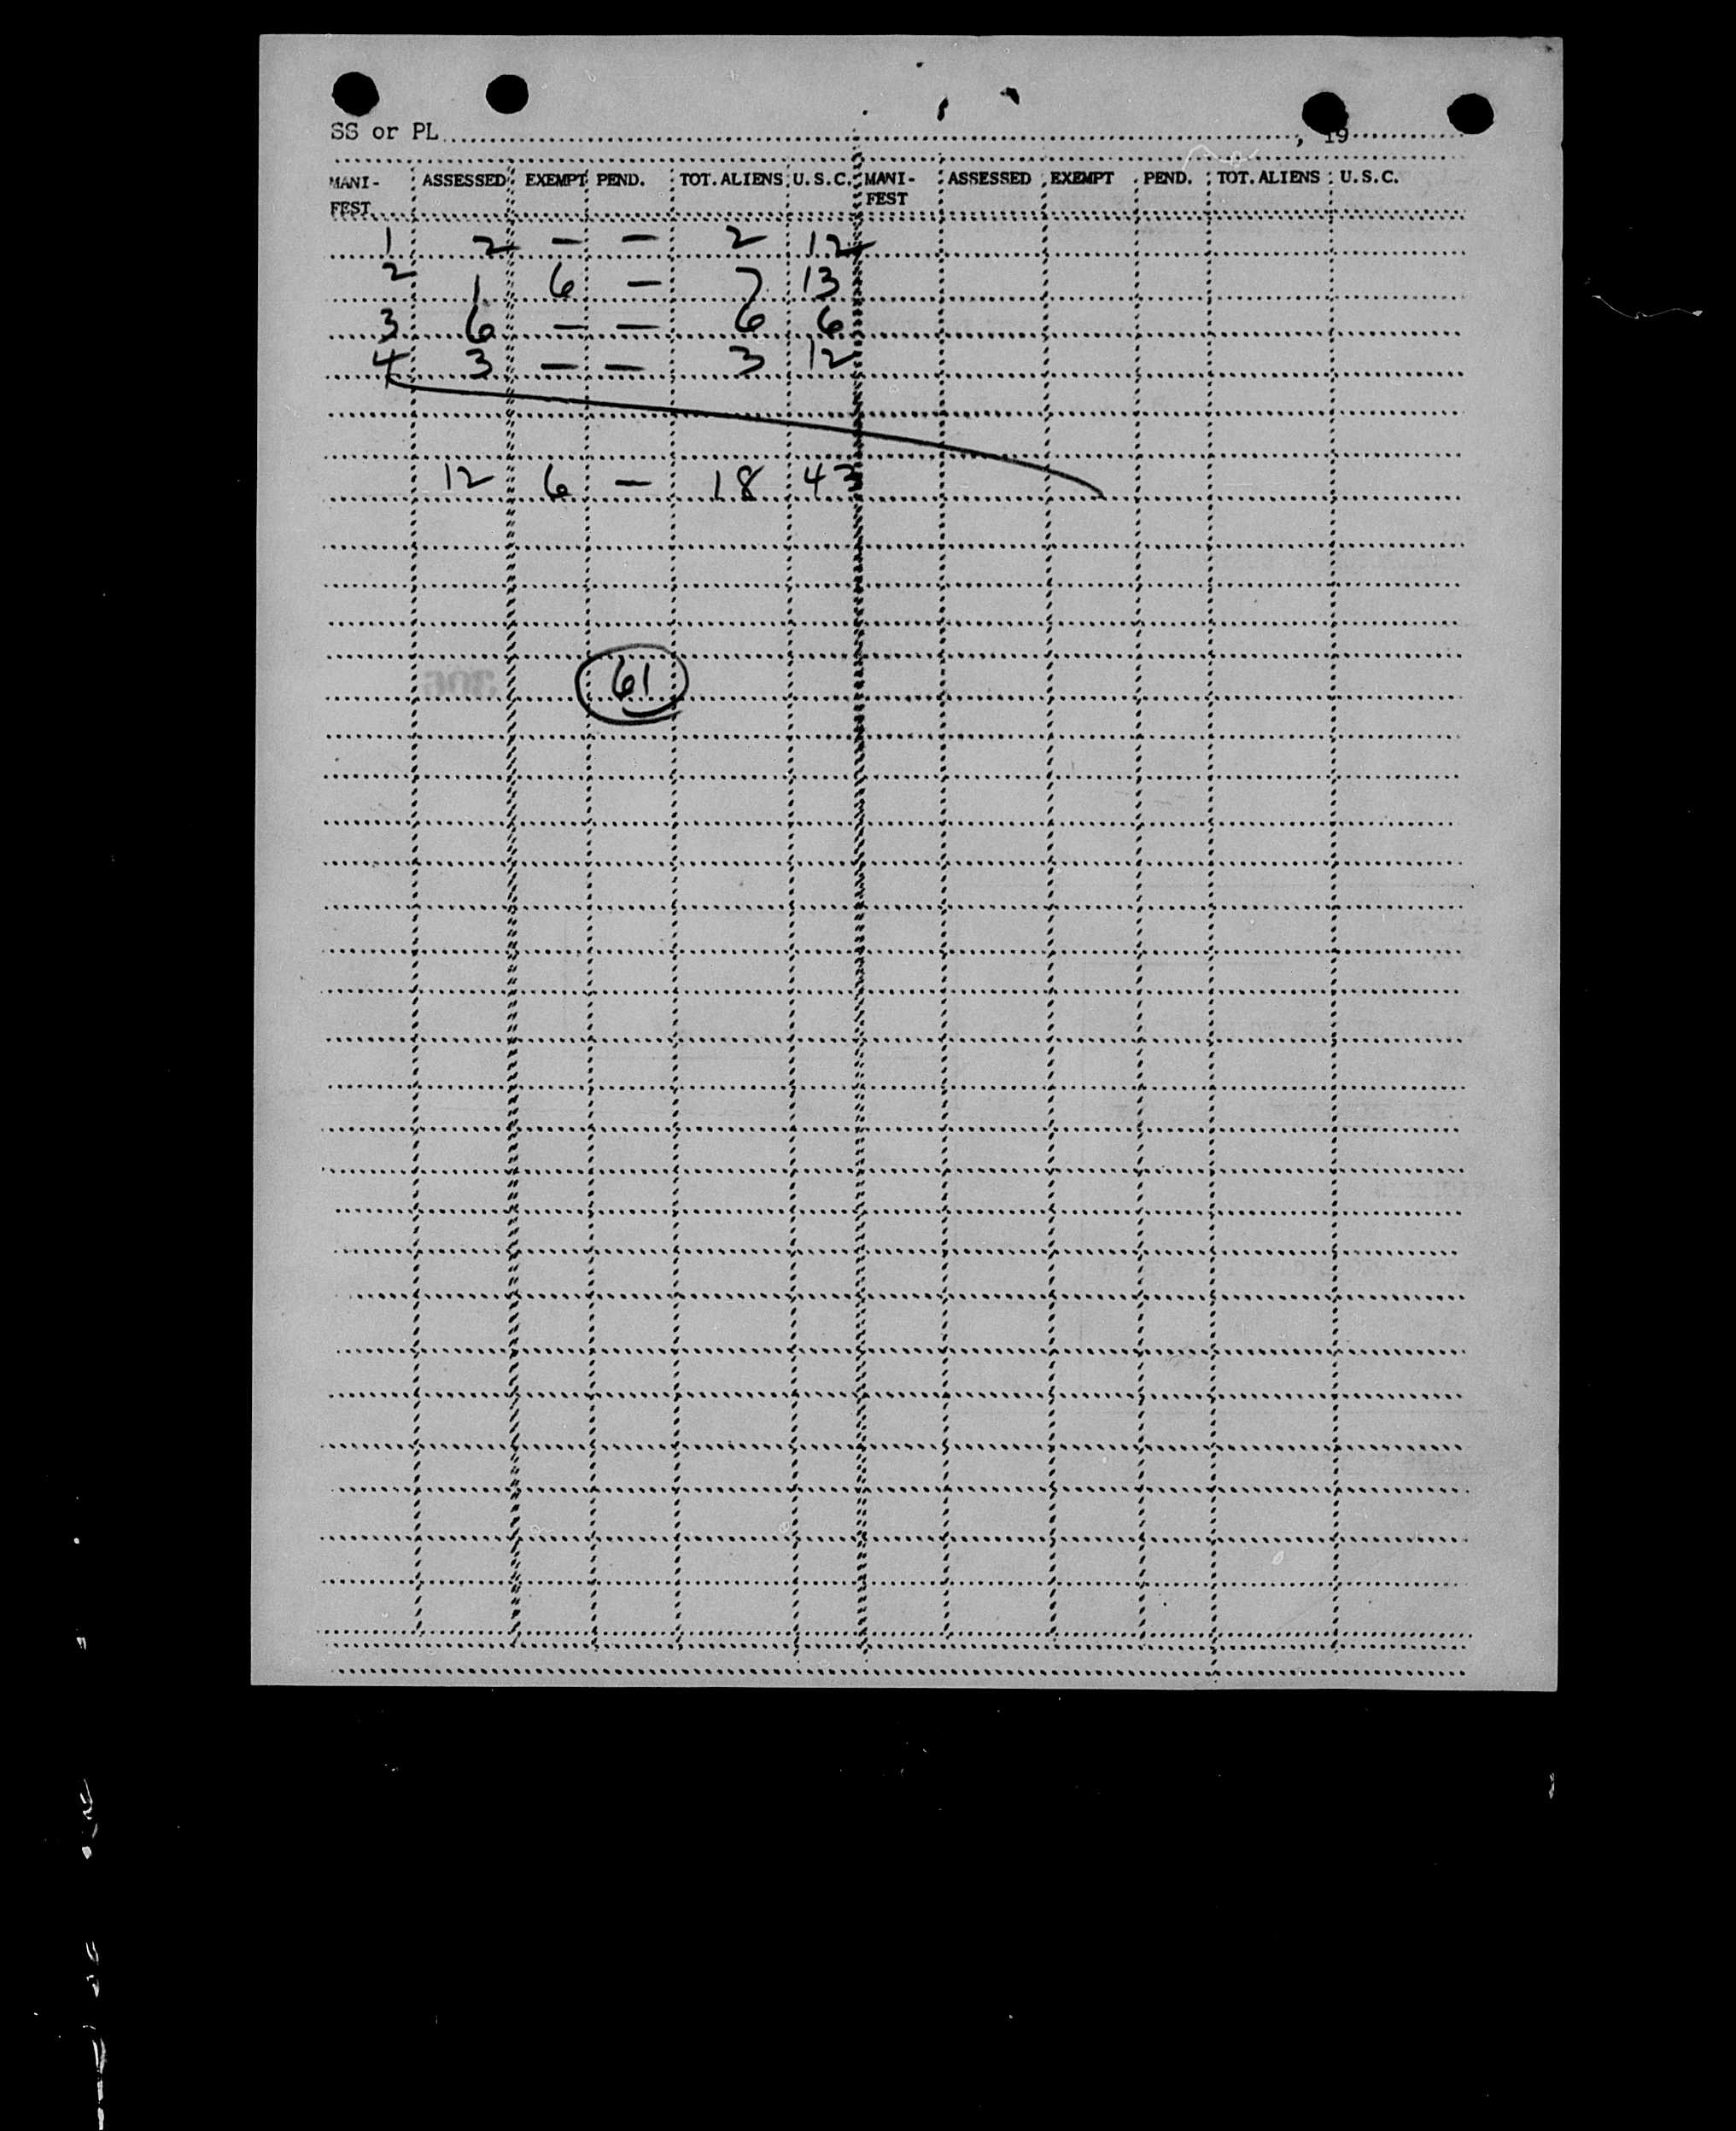 SS or PL , 19
MANI-FEST ASSESSED EXEMPT PEND. TOT. ALIENS U.S.C. MANI-FEST ASSESSED EXEMPT PEND. TOT. ALIENS U.S.C.
1 2 — — 2 12
2 1 6 — 7 13
3 6 — — 6 6
4 3 — — 3 12
12 6 — 18 43
61